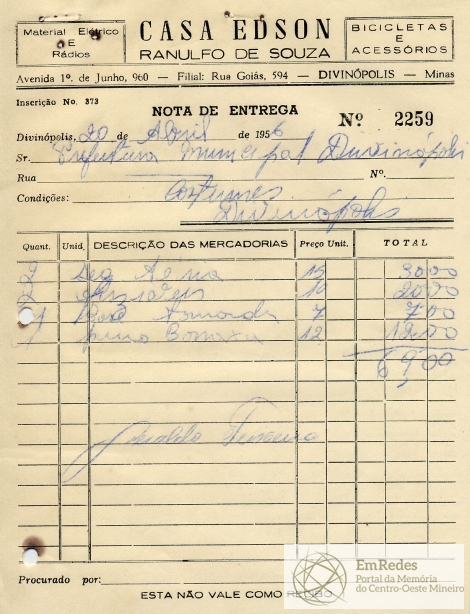 Material Elétrico
E
Rádios
CASA EDSON
RANULFO DE SOUZA
BICICLETAS
E
ACESSÓRIOS
Avenida 1º. de Junho, 960 — Filial: Rua Goiás, 594 — DIVINÓPOLIS — Minas
Inscrição No. 373
NOTA DE ENTREGA
Nº 2259
Divinópolis, 20 de Abril de 1956
Sr. Prefeitura Municipal Divinópolis
Rua Nº.
Condições: Costumes
Divinópolis
Quant. Unid. DESCRIÇÃO DAS MERCADORIAS Preço Unit. TOTAL
2 15 30 00
2 10 20 00
1 7 7 00
1 12 12 00
69,00
Geraldo Teixeira
Procurado por:
ESTA NÃO VALE COMO RECIBO
EmRedes
Portal da Memória
do Centro-Oeste Mineiro